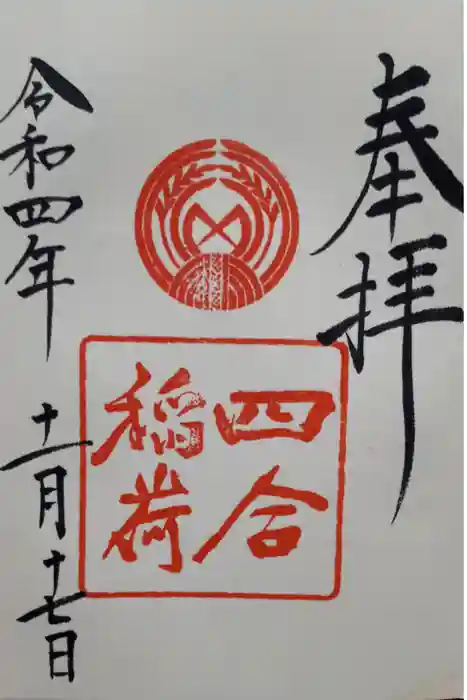 奉拝
四合
稲荷
令和四年 十一月十七日